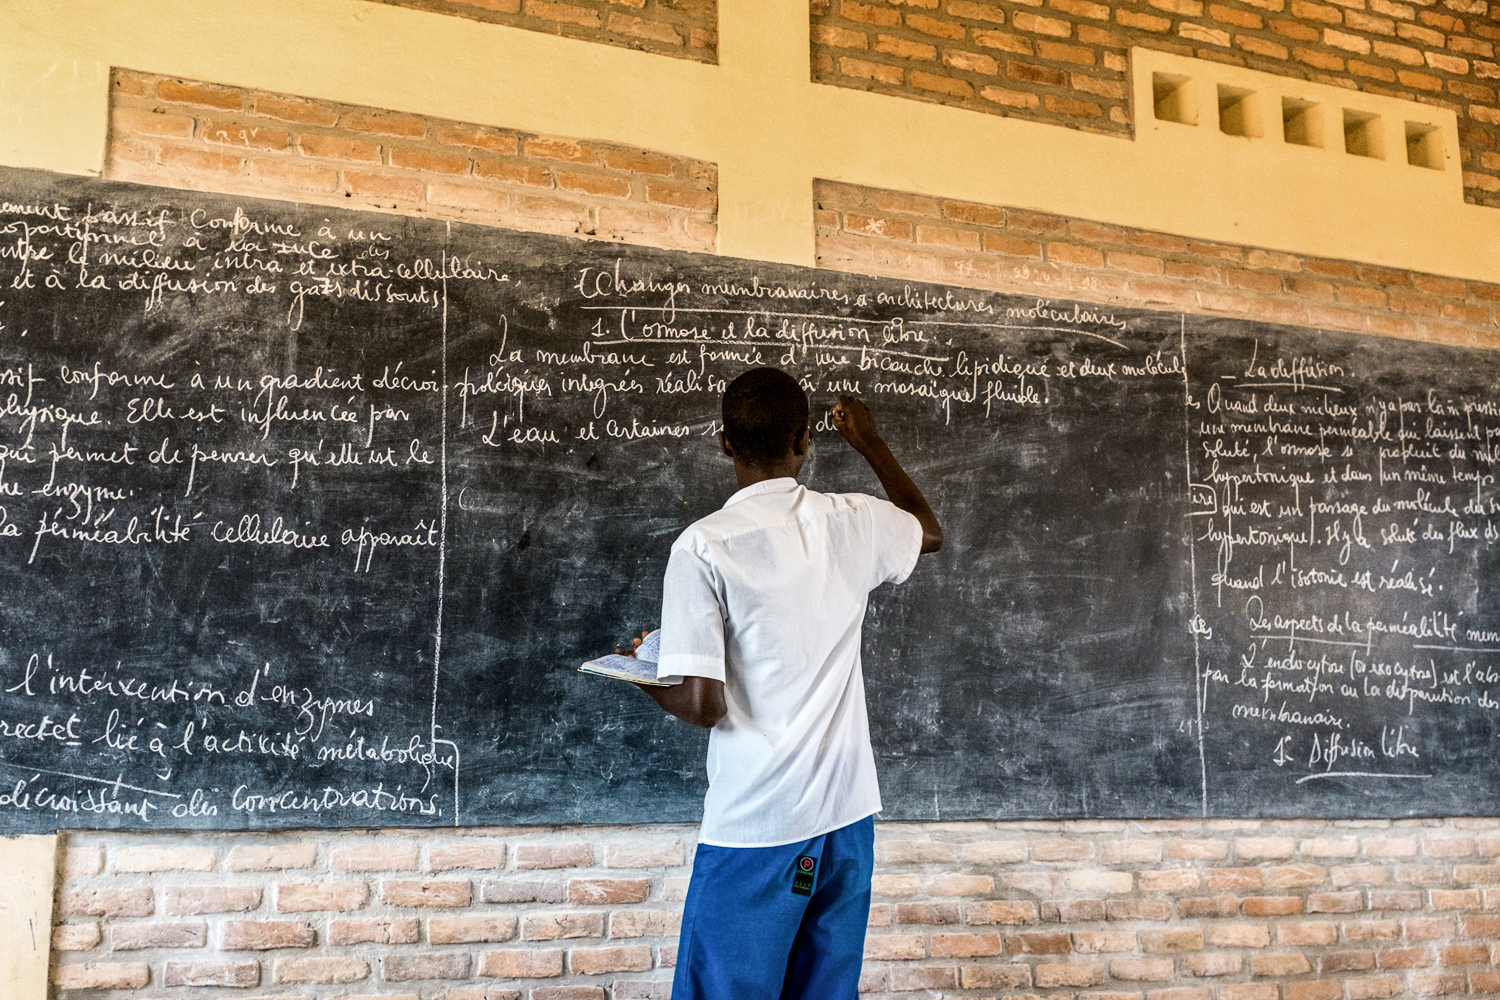 passif conforme à un
à la
le milieu intra et extra-cellulaire,
et à la diffusion des gatsdissouts
conforme à un gradient décroi-
physique. Elle est influencée par
qui permet de penser qu'elle est le
enzyme.
la perméabilité cellulaire apparaît
l'intervention d'enzymes
lié à l'activité métabolique
décroissant des concentrations.
Echanges membranaires et architectures moléculaires
1. L'osmose et la diffusion libre.
La membrane est formée d'une bicouche lipidique et deux molécules
protéiques intégrés réalisa une mosaïque fluide.
L'eau et certaines s d
_ La diffusion.
Quand deux milieux n'ya pas la m
une membrane perméable qui laissent
soluté, l'osmose se produit du
hypertonique et dans un même temps
qui est un passage du molécule du
hypertonique. Il y a des flux
quand l'isotonie est réalisé.
Les aspects de la perméabilité mem
L'endocytose (ou exocytose) est
par la formation ou la disparution des
membranaire.
1° Diffusion libre